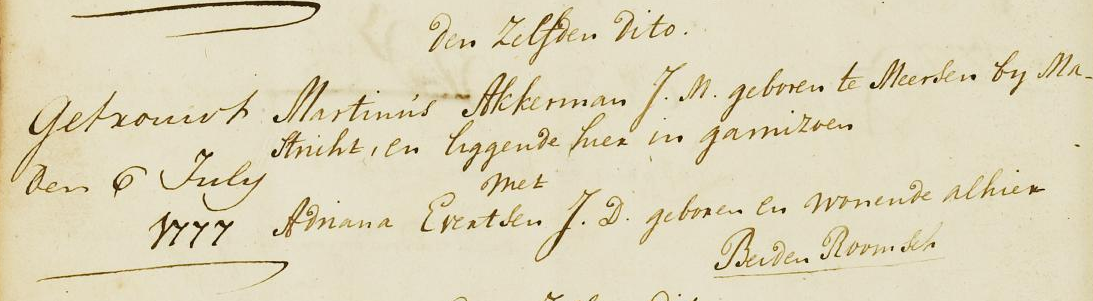 Den Zelfden Dito.
Getrouwt Martinus Akkerman J. M. geboren te Meersen by Ma-
stricht, en liggende hier in garnizoen
Den 6 July met
1777 Adriana Evertsen J. D. geboren en wonende alhier
Beiden Roomsch